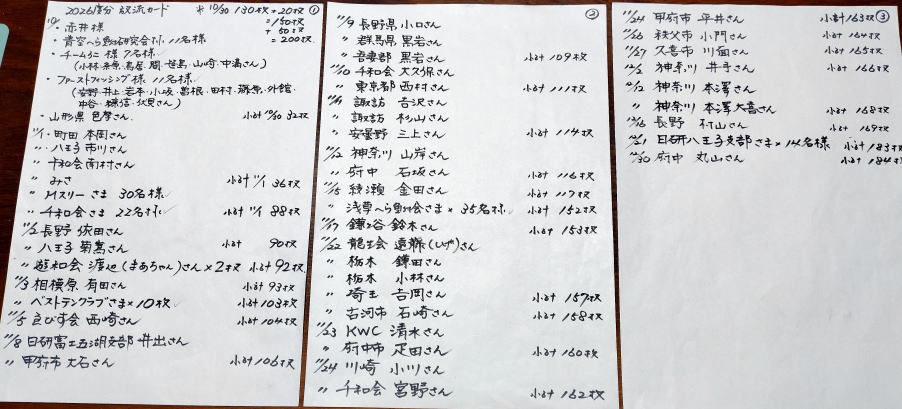 2026度分 放流カード * 10/30 130枚+20枚 ①
=150枚
+50枚
=200枚
10/ ・赤井様
・青空へら鮒研究会さま 11名様
・チームうに様 7名様
(小林、糸原、蔦屋、関、想嶌、山崎、中溝さん)
・ファーストフィッシング様 11名様
(安野、井上、岩本、小坂、葛根、田村、藤原、外館、
中谷、穂信、伏見さん)
・山形県 色摩さん 小計10/30 32枚
11/1・町田 本岡さん
〃 八王子 市川さん
〃 千和会 南村さん
〃 みさ 小計11/1 36枚
〃 Mスリーさま 30名様
〃 千和会さま 22名様 小計11/1 88枚
11/2 長野 依田さん
〃 八王子 菊嶌さん 小計 90枚
〃 遊和会 渡辺(まあちゃん)さん×2枚 小計92枚
11/3 相模原 有田さん 小計93枚
〃 ベストテンクラブさま×10枚 小計103枚
11/5 ゑびす会 西崎さん 小計104枚
11/8 日研富士五湖支部 井出さん
〃 甲府市 大石さん 小計106枚
②
11/9 長野県 小口さん
〃 群馬県 黒岩さん
〃 吾妻郡 黒岩さん 小計109枚
11/10 千和会 大久保さん
〃 東京都 西村さん 小計111枚
諏訪 吉沢さん
〃 諏訪 杉山さん
〃 安曇野 三上さん 小計114枚
11/12 神奈川 山岸さん
〃 府中 石坂さん 小計116枚
11/15 綾瀬 金田さん 小計117枚
〃 浅草へら鮒会さま×35名様 小計152枚
鎌ヶ谷 鈴木さん 小計153枚
11/22 龍生会 遠藤(しげ)さん
〃 栃木 鎌田さん
〃 栃木 小林さん
〃 埼玉 吉岡さん 小計157枚
〃 古河市 石崎さん 小計158枚
11/23 KWC 清水さん
〃 府中市 疋田さん 小計160枚
11/24 川崎 小川さん
〃 千和会 宮野さん 小計162枚
11/24 甲府市 平井さん 小計163枚 ③
11/26 秩父市 小門さん 小計164枚
11/27 久喜市 川面さん 小計165枚
12/2 神奈川 井手さん 小計166枚
12/12 神奈川 本澤さん
〃 神奈川 本澤大喜さん 小計168枚
長野 村山さん 小計169枚
12/21 日研八王子支部さま×14名様 小計183枚
12/30 府中 丸山さん 小計184枚